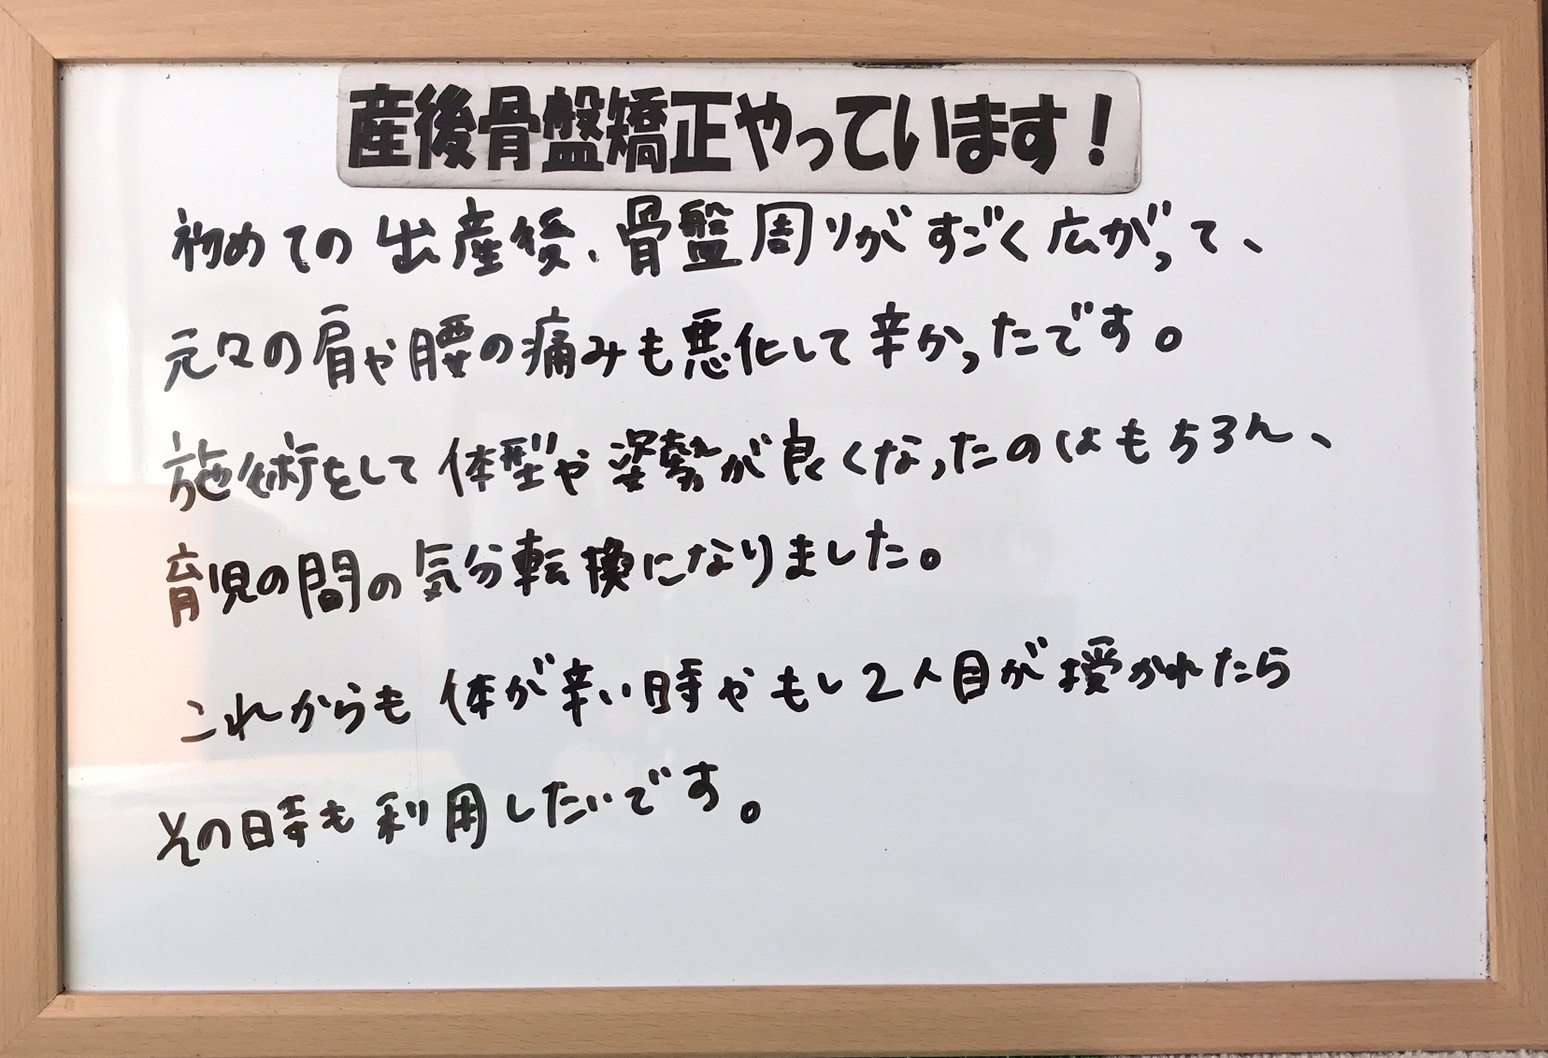 産後骨盤矯正やっています!
初めての出産後、骨盤周りがすごく広がって、
元々の肩や腰の痛みも悪化して辛かったです。
施術をして体型や姿勢が良くなったのはもちろん、
育児の間の気分転換になりました。
これからも体が辛い時やもし2人目が授かれたら
その時も利用したいです。